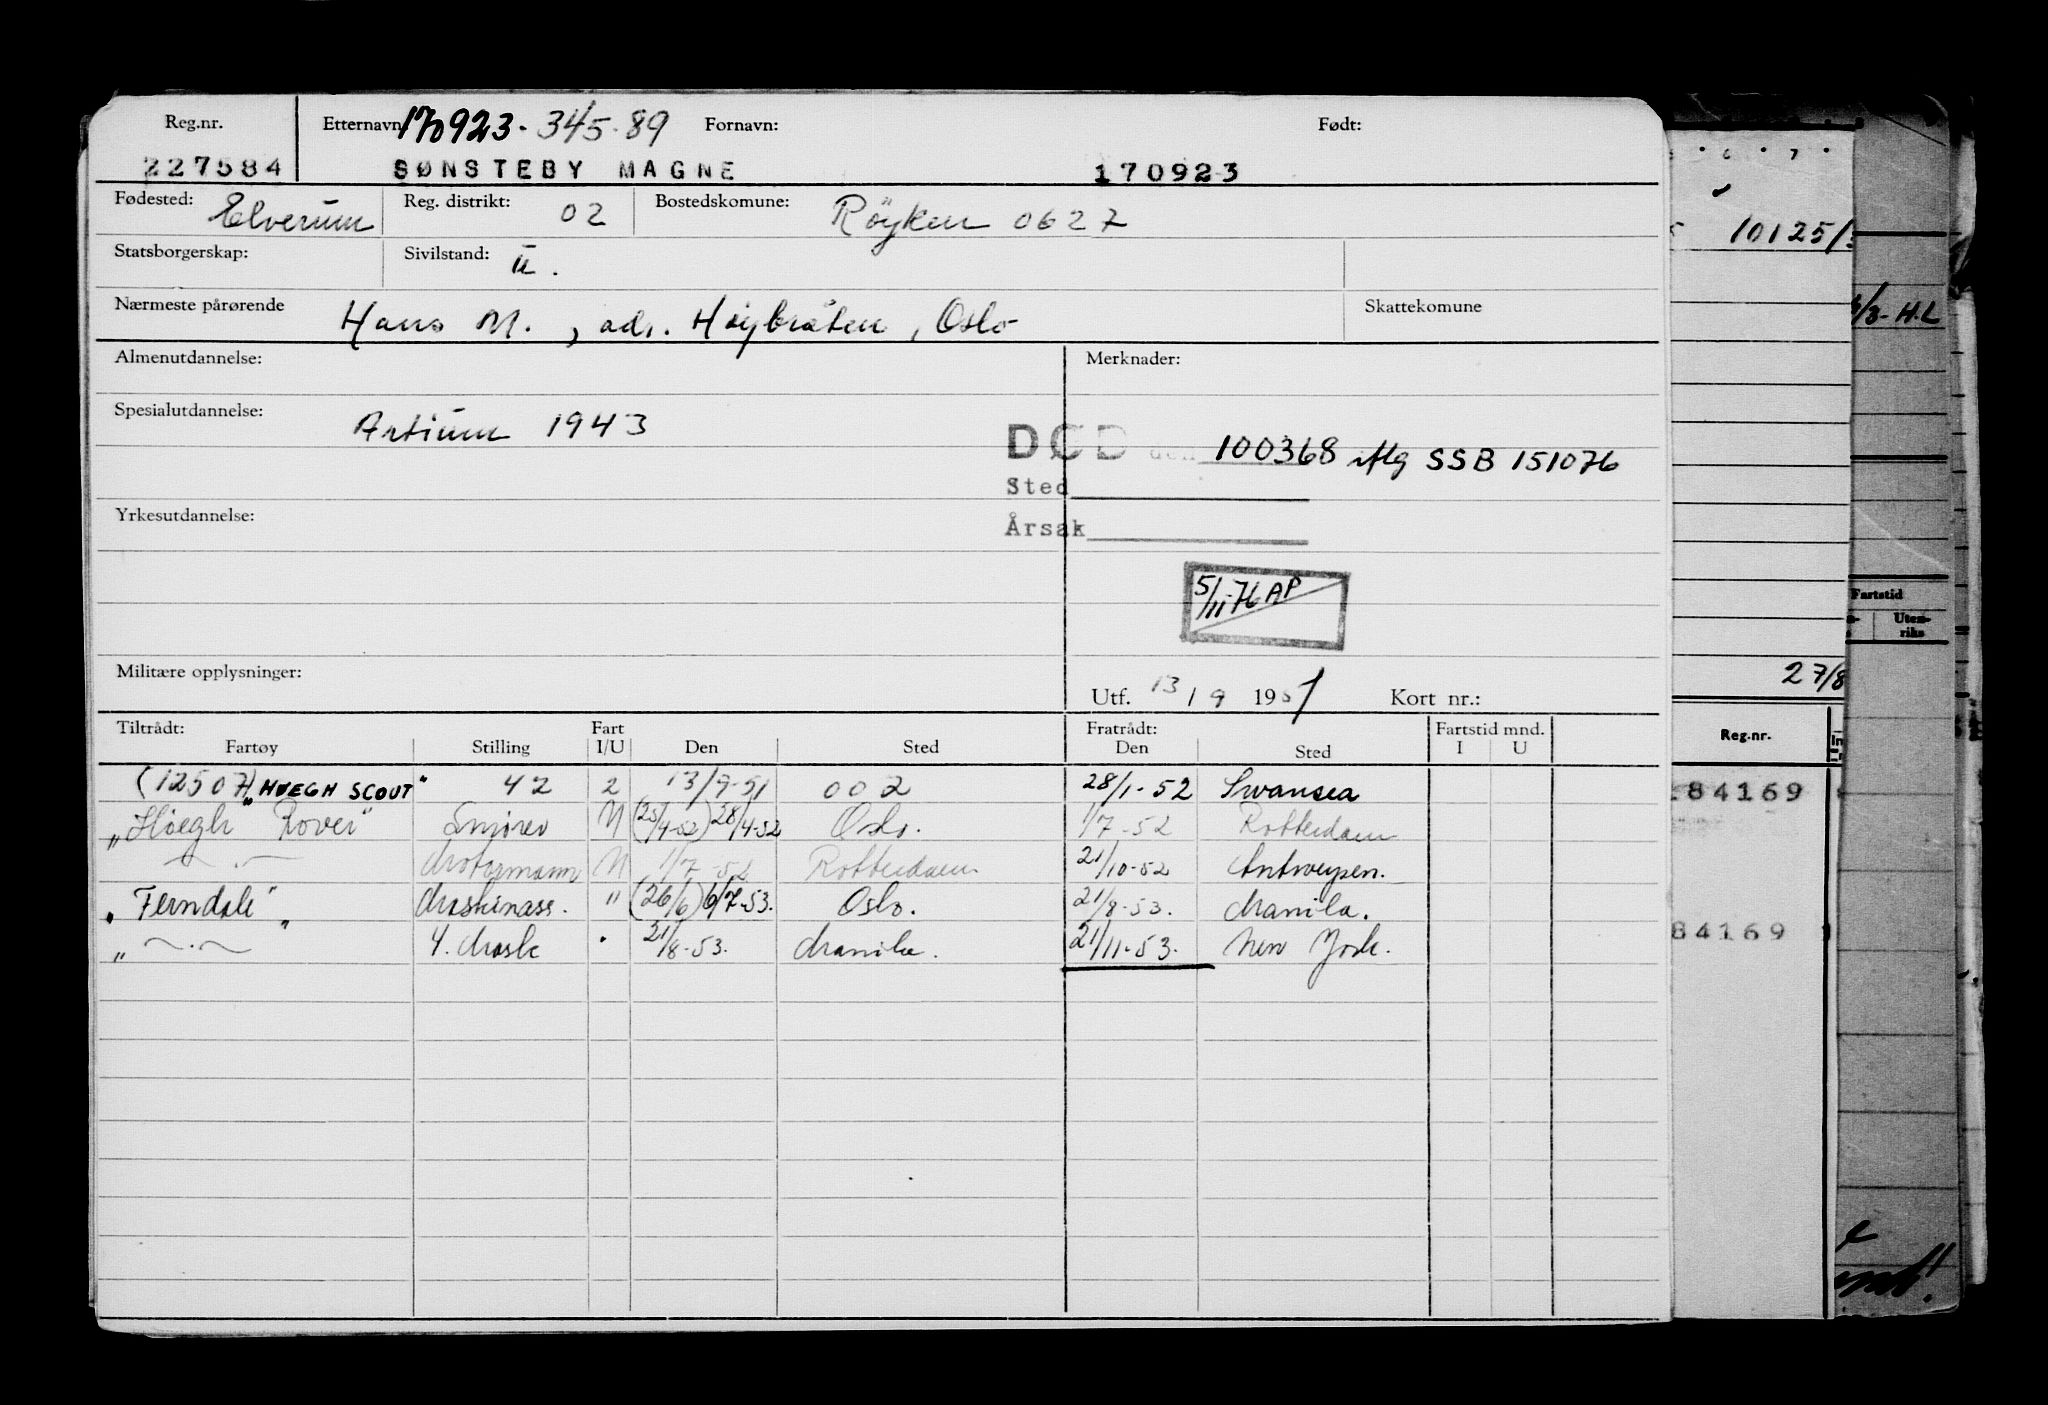 Reg.nr. Etternavn 170923. 345.89 Fornavn: Født:
227584 SØNSTEBY MAGNE 170923
Fødested: Elverum Reg. distrikt: 02 Bostedskomune: Røyken 0627
Statsborgerskap: Sivilstand: u.
Nærmeste pårørende Hans M., adr. Høybråten, Oslo Skattekomune
Almenutdannelse: Merknader:
Spesialutdannelse: Artium 1943
DØD den 100368 iflg SSB 151076
Sted
Årsak
Yrkesutdannelse:
5/11-76 AP
Militære opplysninger:
Utf. 13/9 1951 Kort nr.:
Tiltrådt: Fart Fratrådt: Fartstid mnd.
Fartøy Stilling I/U Den Sted Den Sted I U
(12507) "HØEGH SCOUT" 42 2 13/9-51 002 28/1-52 Swansea
"Høegh Rover" Smører N (25/4-52) 28/4-52 Oslo. 1/7-52 Rotterdam
— " — Motormann N 1/7-52 Rotterdam 21/10-52 Antwerpen.
"Ferndale" Maskinass. " (26/6) 6/7-53. Oslo. 21/8-53. Manila.
" — . — " 4. Mask 21/8-53. Manila. 21/11-53. New York.
6 7
10125/
/3- H.L
Fartstid
Uten-
riks
27/8
Reg.nr.
84169
84169